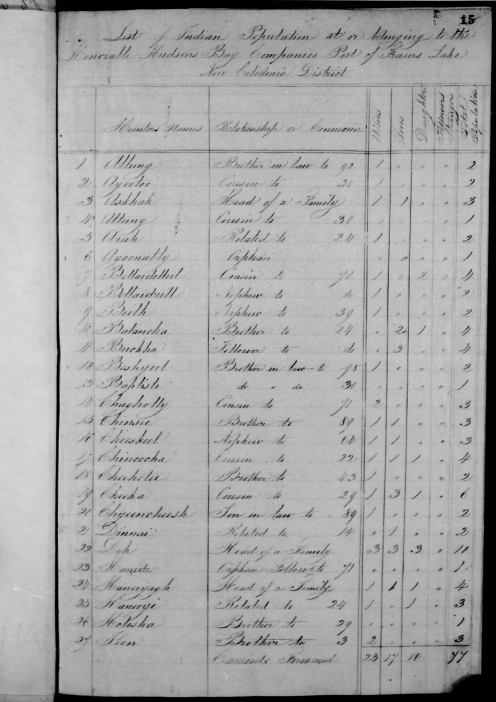 15
List of Indian Population at or belonging to the
Honorable Hudsons Bay Companies Post of Frasers Lake
New Caledonia District
Hunters Names Relationship or Connexion Wives Sons Daughters Followers Strangers Total Population
1 Attung Brother in law to 92 1 " " " 2
2 Cousin to 1 " " " 2
3 Ashkak Head of a Family 1 1 " " 3
4 Attung Cousin to 38 " " " " 1
5 Azah Related to 24 1 " " " 2
6 Orphan " " " " 1
7 Cousin to 71 1 " 2 " 4
8 Nephew to 1 " " " 2
9 Nephew to 39 1 " " " 2
10 Balancha Brother to 24 " 2 1 " 4
11 Buckha Follower to " 3 " " 4
12 Brother in law to 98 1 " " " 2
13 Baptiste do " do " " " " 1
14 Cousin to 2 " " " 3
15 Chinsie Brother to 89 1 1 " " 3
16 Nephew to 64 1 1 " " 3
17 Chinoocha Cousin to 22 1 1 1 " 4
18 Brother to 43 1 " " " 2
19 Cheeha Cousin to 29 1 3 1 " 6
20 Son in law to 89 1 " " " 2
21 Related to 14 " 1 " " 2
22 Head of a Family 3 3 3 " 10
23 Orphan Follow to 71 " " " " 1
24 Head of a Family 1 1 1 " 4
25 Related to 24 1 " 1 " 3
26 Holesha Brother to 29 " " " " 1
27 Brother to 3 2 " " " 3
Carried Forward 23 17 10 77